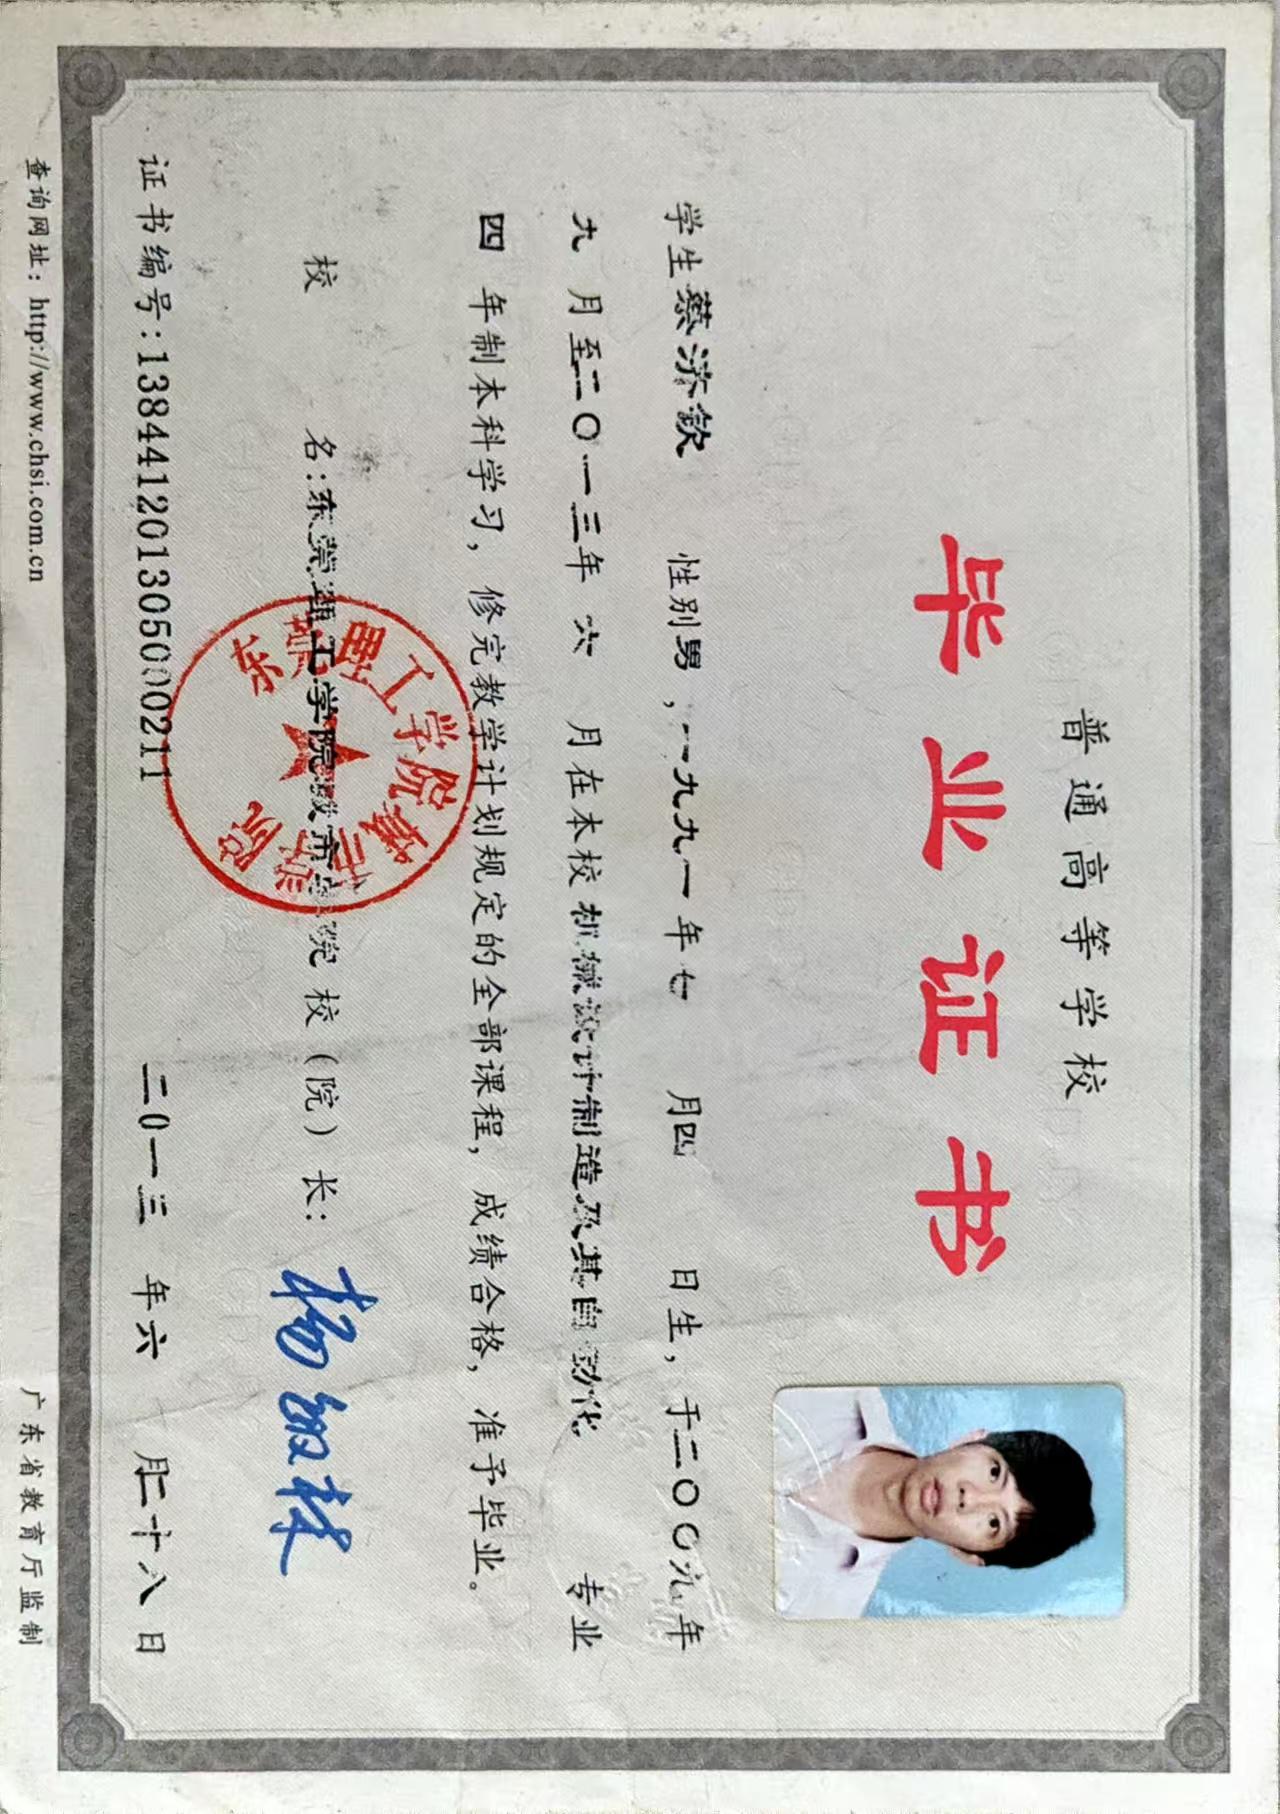 普通高等学校
毕业证书
学生蔡济钦 性别男，一九九一年七 月四 日生，于二〇〇九年
九 月至二〇一三年 六 月在本校机械设计制造及其自动化 专业
四 年制本科学习，修完教学计划规定的全部课程，成绩合格，准予毕业。
校 名：东莞理工学院城市学院 校（院）长：
东莞理工学院城市学院
证书编号：138441201305000211 二〇一三 年六 月二十八 日
查询网址：http://www.chsi.com.cn 广东省教育厅监制